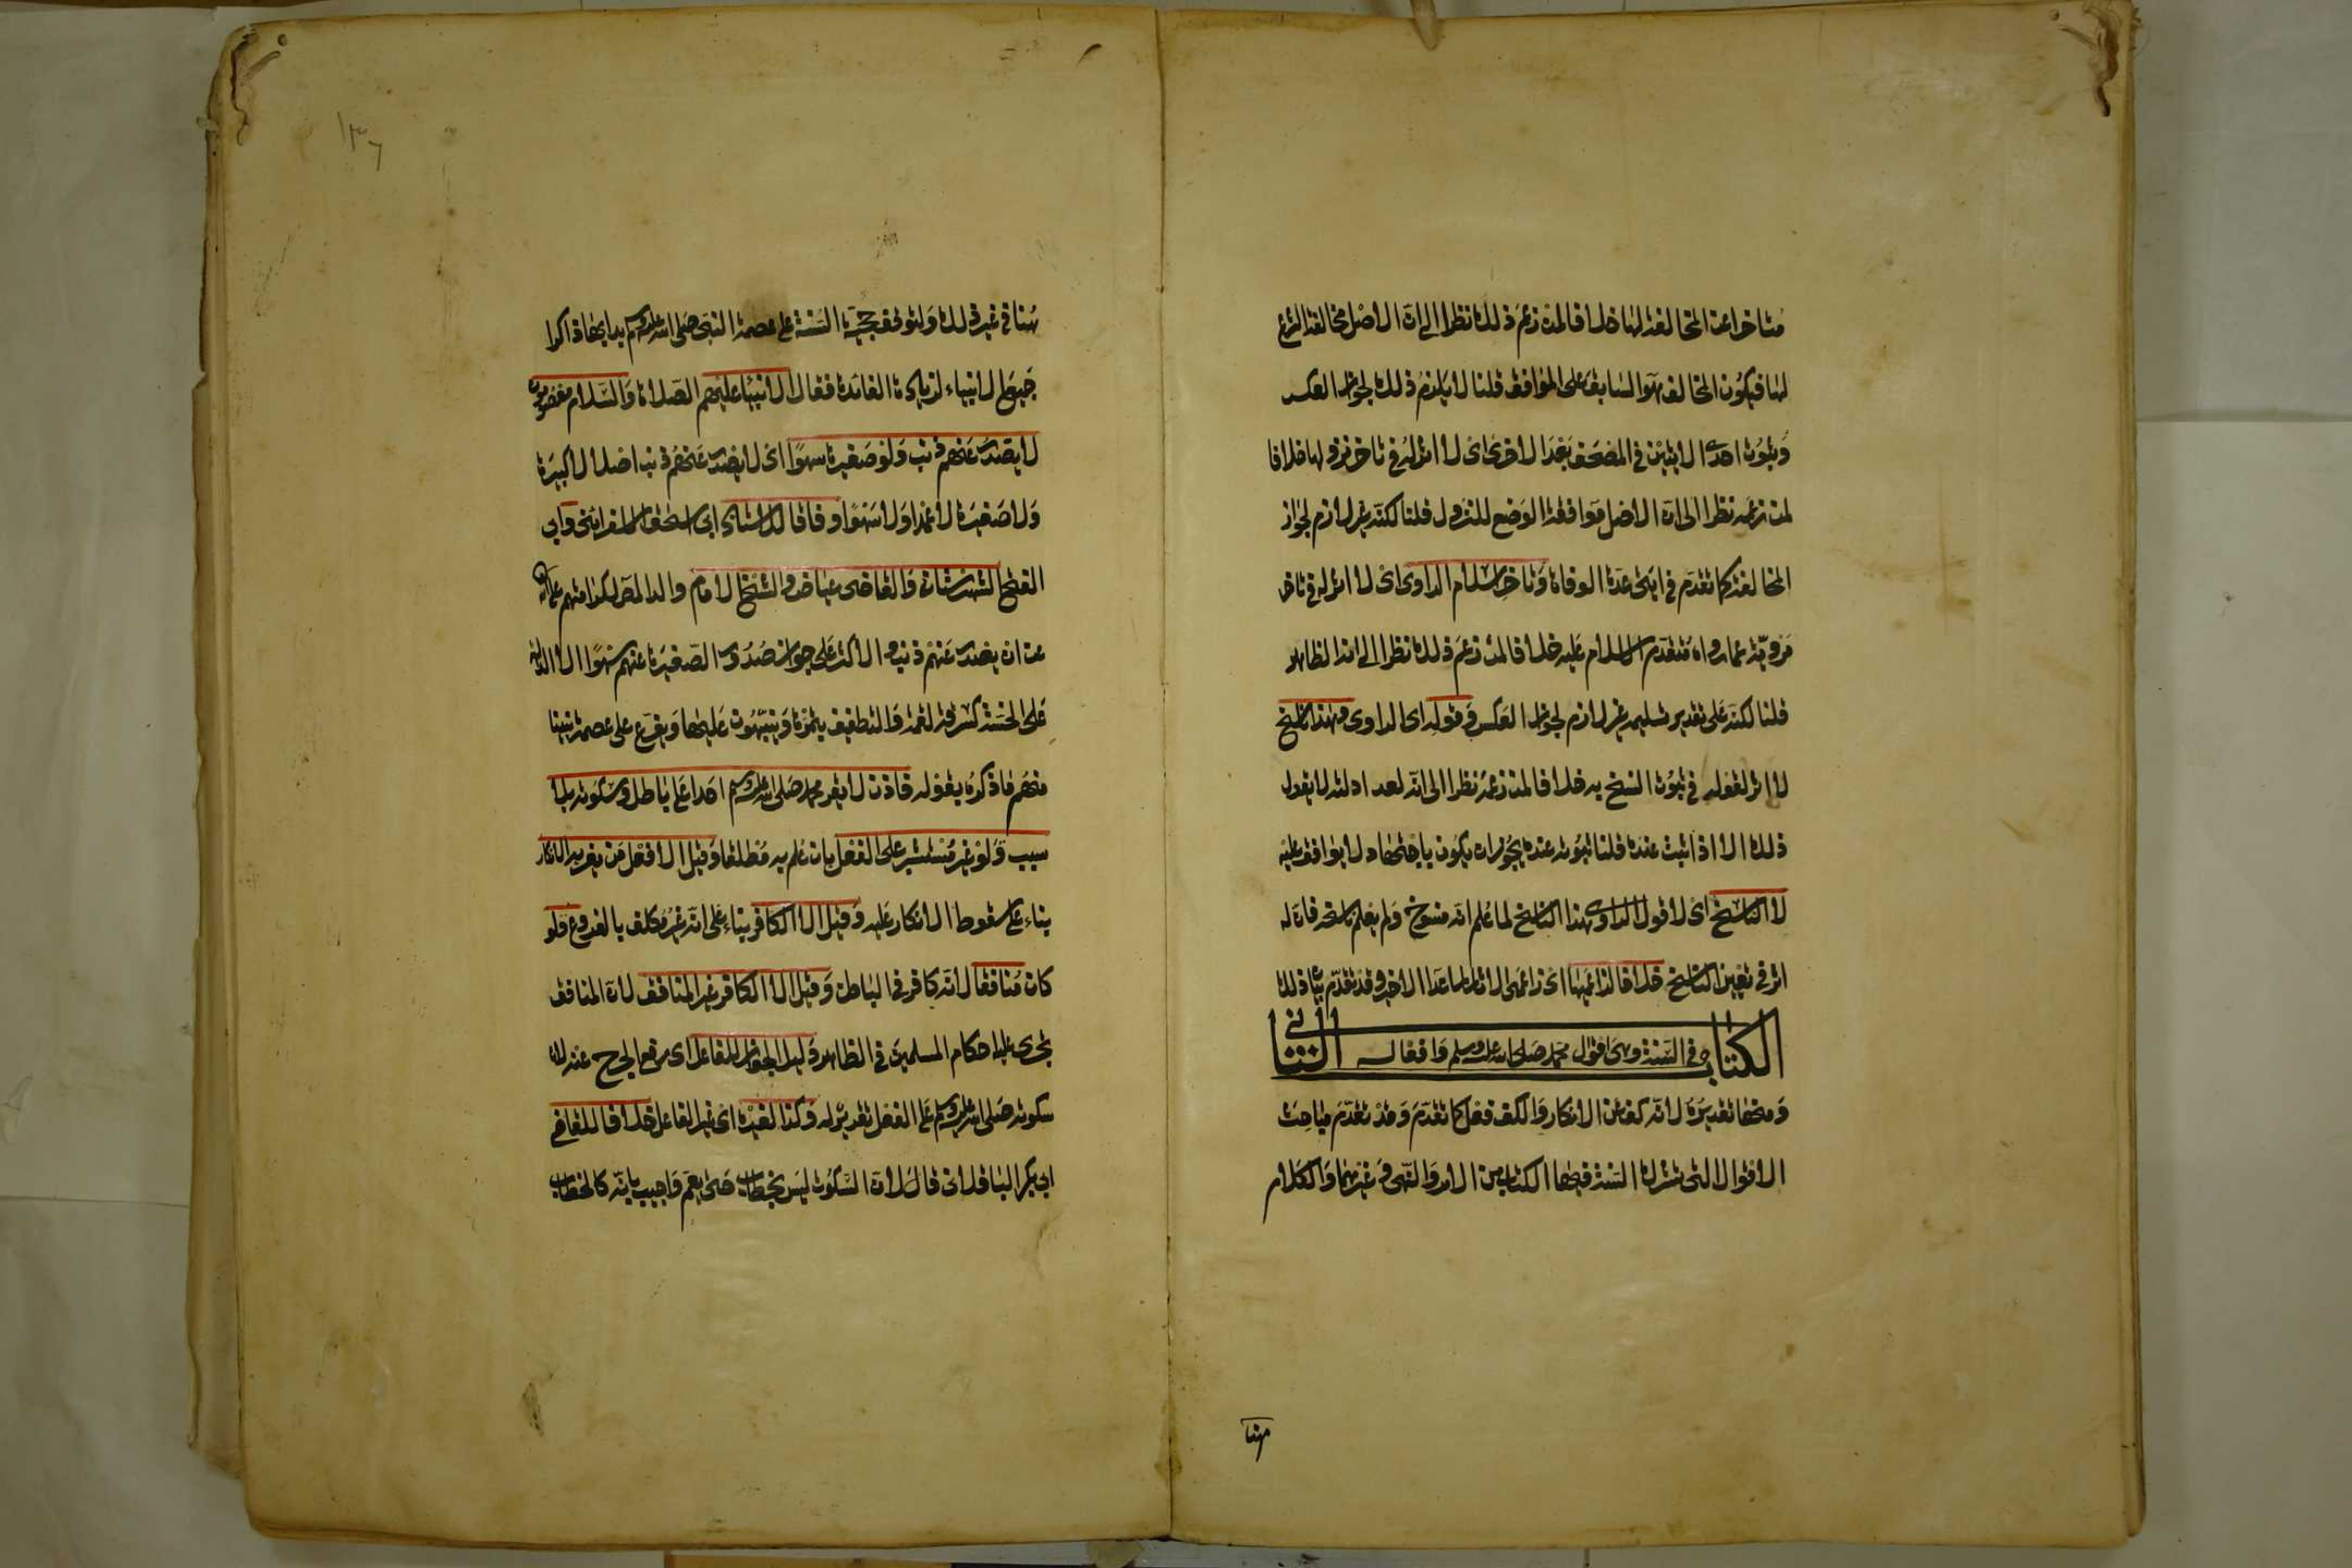 متاخرا عن المخالفة لها خلافا لمن زعم ذلك نظرا الى ان الاصل مخالفة الشرع
لها فيكون المخالف هو السابق على الموافق قلنا لا يلزم ذلك لجواز العكس
وثبوت احدى الايتين في المصحف بعد الاخرى اى لا اثر له في تاخر نزولها خلافا
لمن زعمه نظرا الى ان الاصل موافقة الوضع للنزول قلنا لكنه غير لازم لجواز
المخالفة كما تقدم في ايتى عدة الوفاة وتاخر اسلام الراوى اى لا اثر له في تاخر
مرويه عما رواه متقدم الاسلام عليه خلافا لمن زعم ذلك نظرا الى انه الظاهر
قلنا لكنه على تقدير تسليمه غير لازم لجواز العكس وقوله اى الراوى هذا ناسخ
لا اثر لقوله في ثبوت النسخ به خلافا لمن زعمه نظرا الى انه لعدالته لا يقول
ذلك الا اذا ثبت عنده قلنا ثبوته عنده يجوز ان يكون باجتهاد لا يوافق عليه
لا الناسخ اى لا قول الراوى هذا الناسخ لما علم انه منسوخ ولم يعلم ناسخه فان له
اثر في تعيين الناسخ خلافا لزاعميها اى زاعمى الاثار لما عدا الاخير وقد تقدم بيان ذلك
الكتاب الثانى في السنة وهى اقوال محمد صلى الله عليه وسلم وافعاله
ومنها تقديره لانه كف عن الانكار والكف فعل كما تقدم وقد تقدم مباحث
الاقوال التى تشرك السنة فيها الكتاب من الامر والنهى وغيرهما والكلام
هنا
١٣٦
هنا في غير ذلك ولتوقف حجية السنة على عصمة النبى صلى الله عليه وسلم بدا بها ذاكرا
جميع الانبياء لزيادة الفائدة فقال الانبياء عليهم الصلاة والسلام معصومون
لا يصدر عنهم ذنب ولو صغيرة سهوا اى لا يصدر عنهم ذنب اصلا لا كبيرة
ولا صغيرة لا عمدا ولا سهوا وفاقا للاستاذ ابى اسحق الاسفراينى وابى
الفتح الشهرستانى والقاضى عياض والشيخ الامام والد المص لكرامتهم على الله
عن ان يصدر عنهم ذنب والاكثر على جواز صدور الصغيرة عنهم سهوا الا الدالة
على الخسة كسرقة لقمة والتطفيف بتمرة وينبهون عليها ويفرع على عصمة نبينا
منهم ما ذكره بقوله فاذن لا يقر محمد صلى الله عليه وسلم احدا على باطل وسكوته بلا
سبب ولو غير مستبشر على الفعل بان علم به مطلقا وقيل الا فعل من يغريه الانكار
بناء على سقوط الانكار عليه وقيل الا الكافر بناء على انه غير مكلف بالفروع ولو
كان منافقا لانه كافر في الباطن وقيل الا الكافر غير المنافق لان المنافق
يجرى عليه احكام المسلمين في الظاهر دليل الجواز للفاعل اى رفع الحرج عنه لان
سكوته صلى الله عليه وسلم على الفعل تقرير له وكذا لغيره اى غير الفاعل خلافا للقاضى
ابى بكر الباقلانى قال لان السكوت ليس بخطاب حتى يعم واجيب بانه كالخطاب